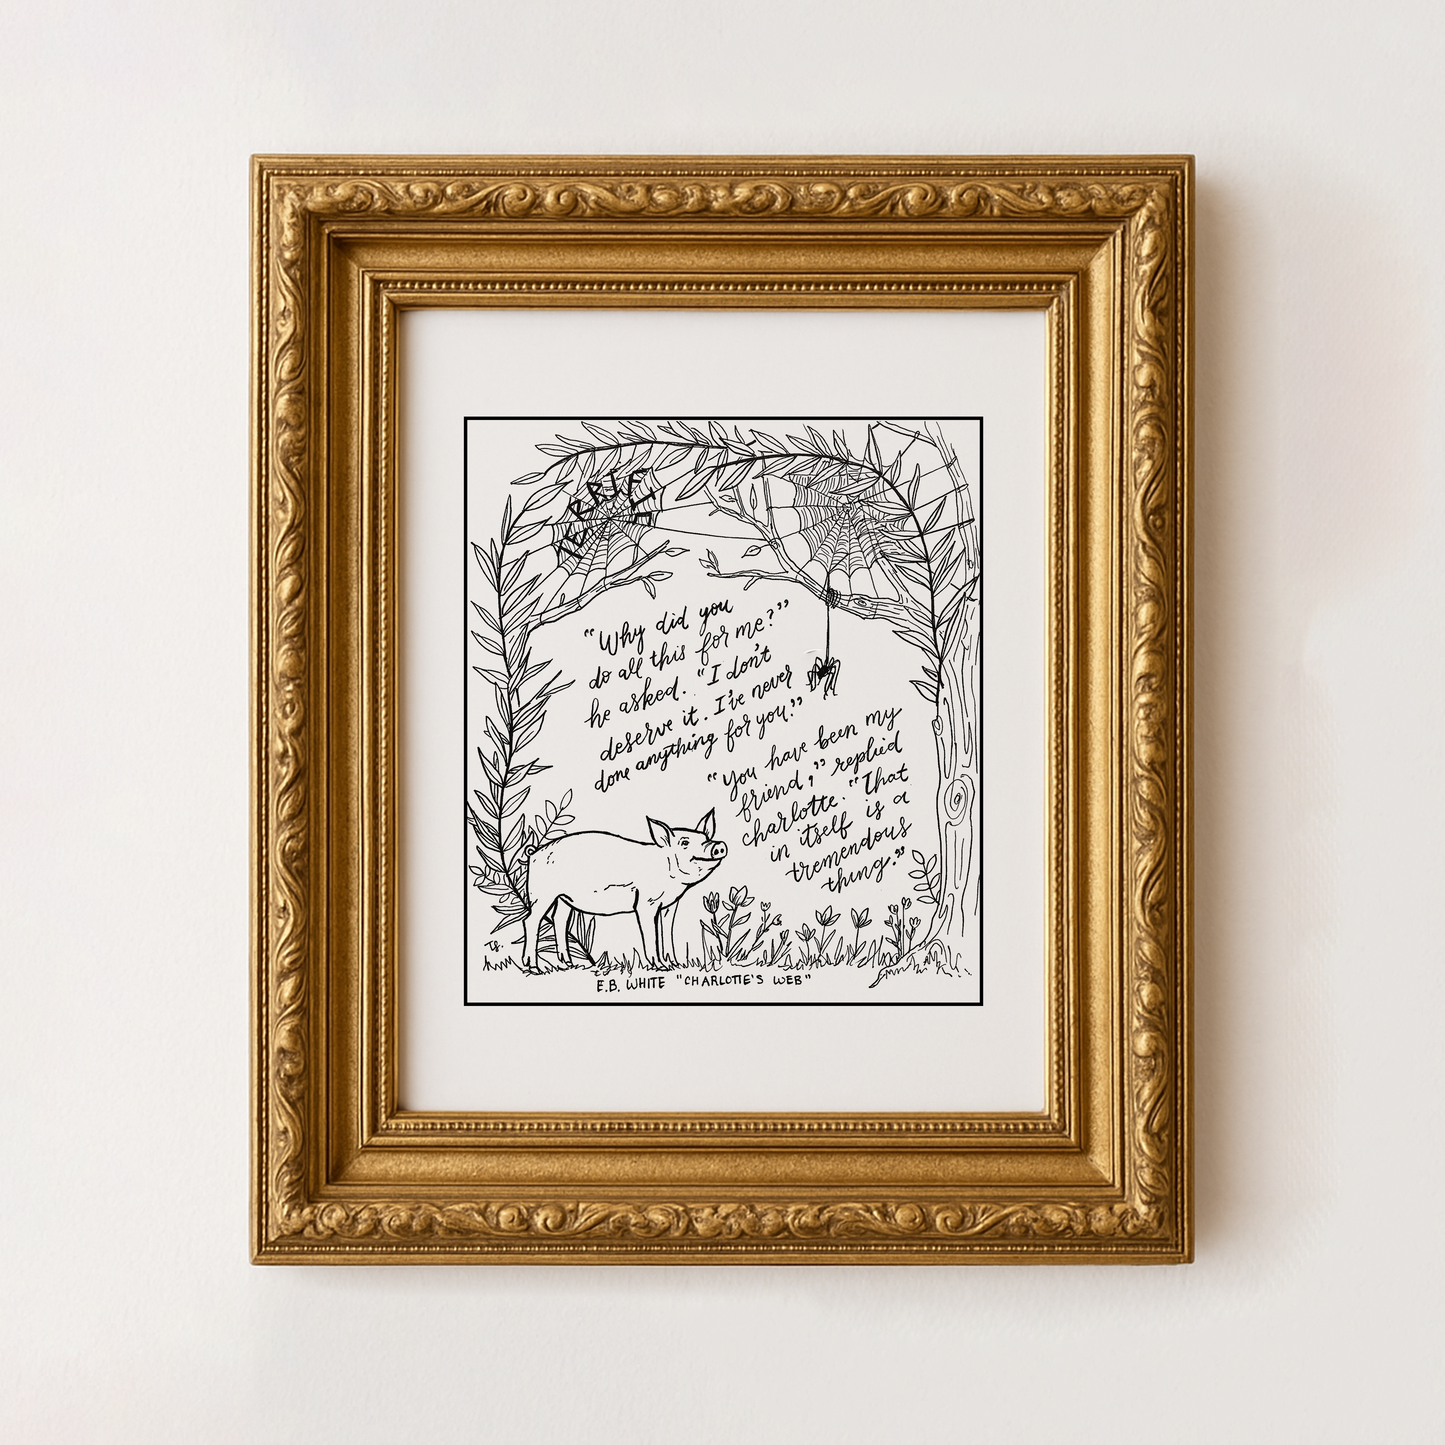 TERRIFIC
"Why did you
do all this for me?"
he asked. "I don't
deserve it. I've never
done anything for you."
"You have been my
friend," replied
Charlotte. "That
in itself is a
tremendous
thing."
TS.
E.B. WHITE "CHARLOTTE'S WEB"